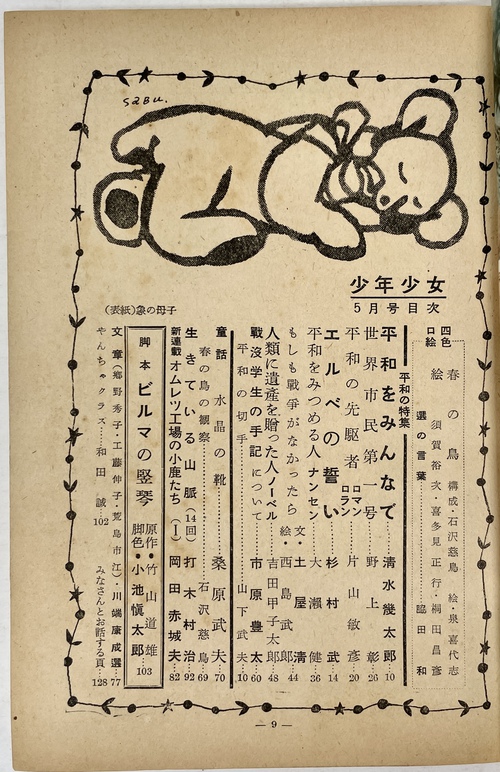 SABU.
少年少女
5月号目次
(表紙)象の母子
四色口絵
春の鳥 構成・石沢慈鳥 絵・泉喜代志
絵 須賀裕次・喜多見正行・桐田昌彦
選の言葉 脇田和
平和の特集
平和をみんなで 清水幾太郎 10
世界市民第一号 野上彰 26
平和の先駆者 ロマン ロラン 片山敏彦 20
エルベの誓い 杉村武 14
平和をみつめる人 ナンセン 大瀬健 36
もしも戦争がなかったら 文・土屋清 44
絵・西島武郎
人類に遺産を贈った人 ノーベル 吉田甲子太郎 48
戰没学生の手記について 市原豊太 60
平和の切手 山下武夫 10
童話 水晶の靴 桑原武夫 70
春の鳥の観察 石沢慈鳥 69
生きている山脈(14回) 打木村治 92
新連載 オムレツ工場の小鹿たち(I) 岡田赤城夫 82
脚本 ビルマの竪琴 原作・竹山道雄 脚色・小池愼太郎 103
文章(郷野秀子・工藤伸子・荒島市江)・川端康成選 77
やんちゃクラス 和田誠 102
みなさんとお話する頁 128
— 9 —